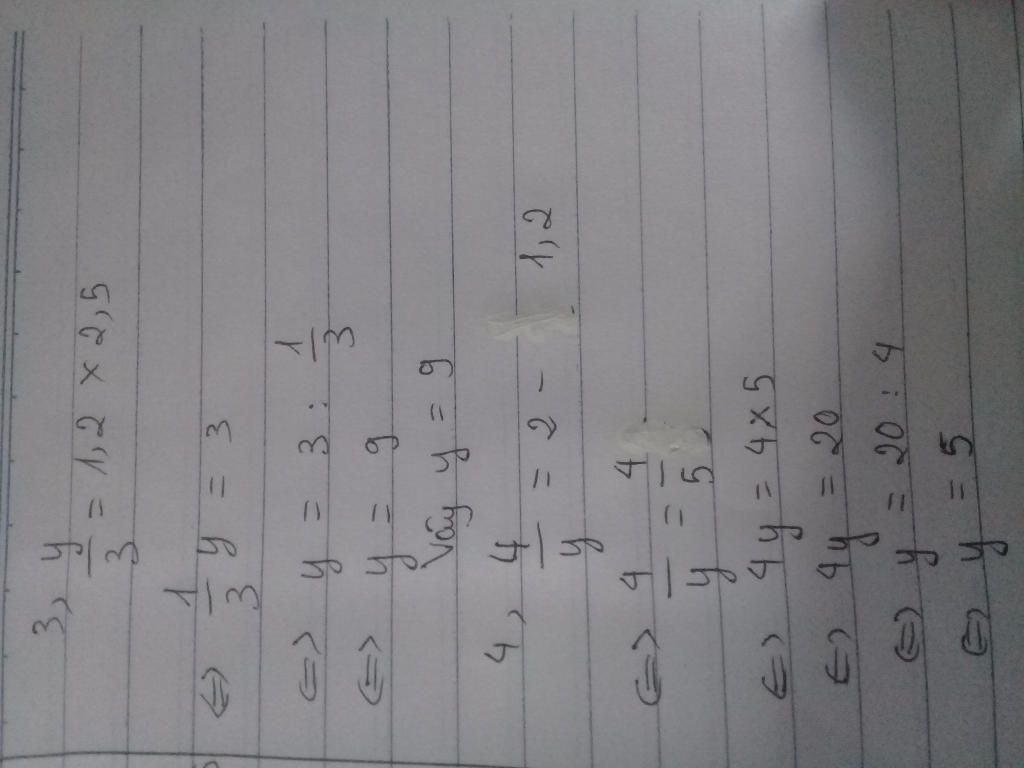 3, y/3 = 1,2 × 2,5
⇔ 1/3 y = 3
⇔ y = 3 : 1/3
⇔ y = 9
Vậy y = 9
4, 4/y = 2 - 1,2
⇔ 4/y = 4/5
⇔ 4y = 4 × 5
⇔ 4y = 20
⇔ y = 20 : 4
⇔ y = 5